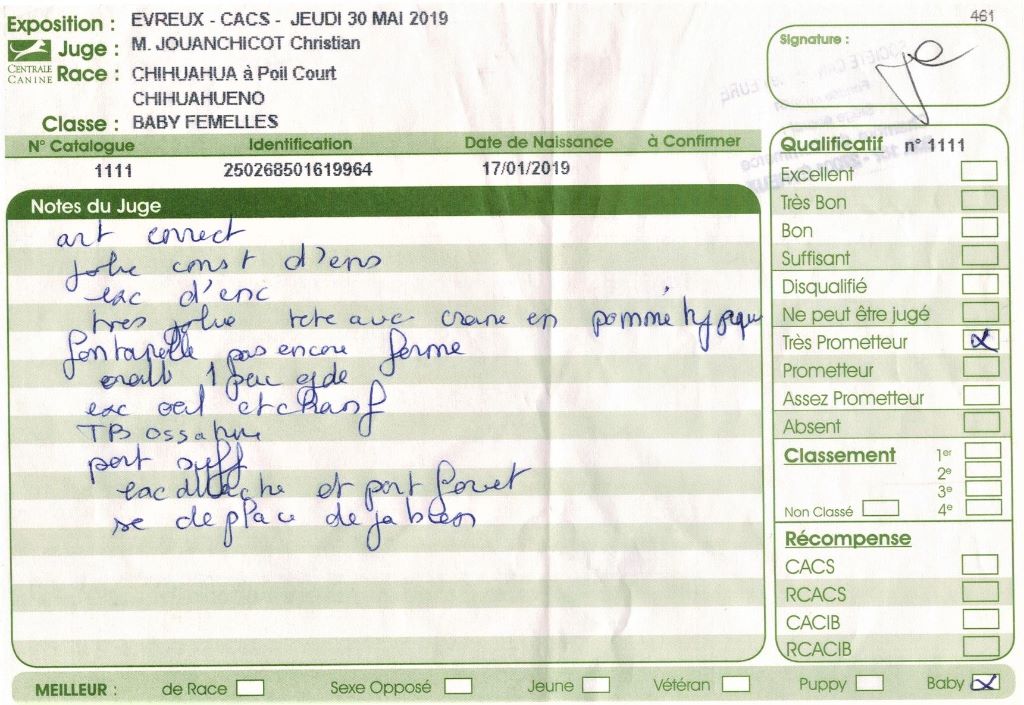 461
Exposition : EVREUX - CACS - JEUDI 30 MAI 2019
Juge : M. JOUANCHICOT Christian
CENTRALE CANINE
Race : CHIHUAHUA à Poil Court
CHIHUAHUENO
Classe : BABY FEMELLES
Signature :
N° Catalogue Identification Date de Naissance à Confirmer
1111 250268501619964 17/01/2019
Notes du Juge
art correct
jolie const d'ens
exc d'enc
tres jolie tete avec crane en pomme
fontanelle pas encore ferme
1 peu gde
exc oeil et chanf
TB ossature
port suff
exc attache et port fouet
se deplace deja bien
Qualificatif n° 1111
Excellent
Très Bon
Bon
Suffisant
Disqualifié
Ne peut être jugé
Très Prometteur
Prometteur
Assez Prometteur
Absent
Classement 1er
2e
3e
Non Classé 4e
Récompense
CACS
RCACS
CACIB
RCACIB
MEILLEUR : de Race Sexe Opposé Jeune Vétéran Puppy Baby